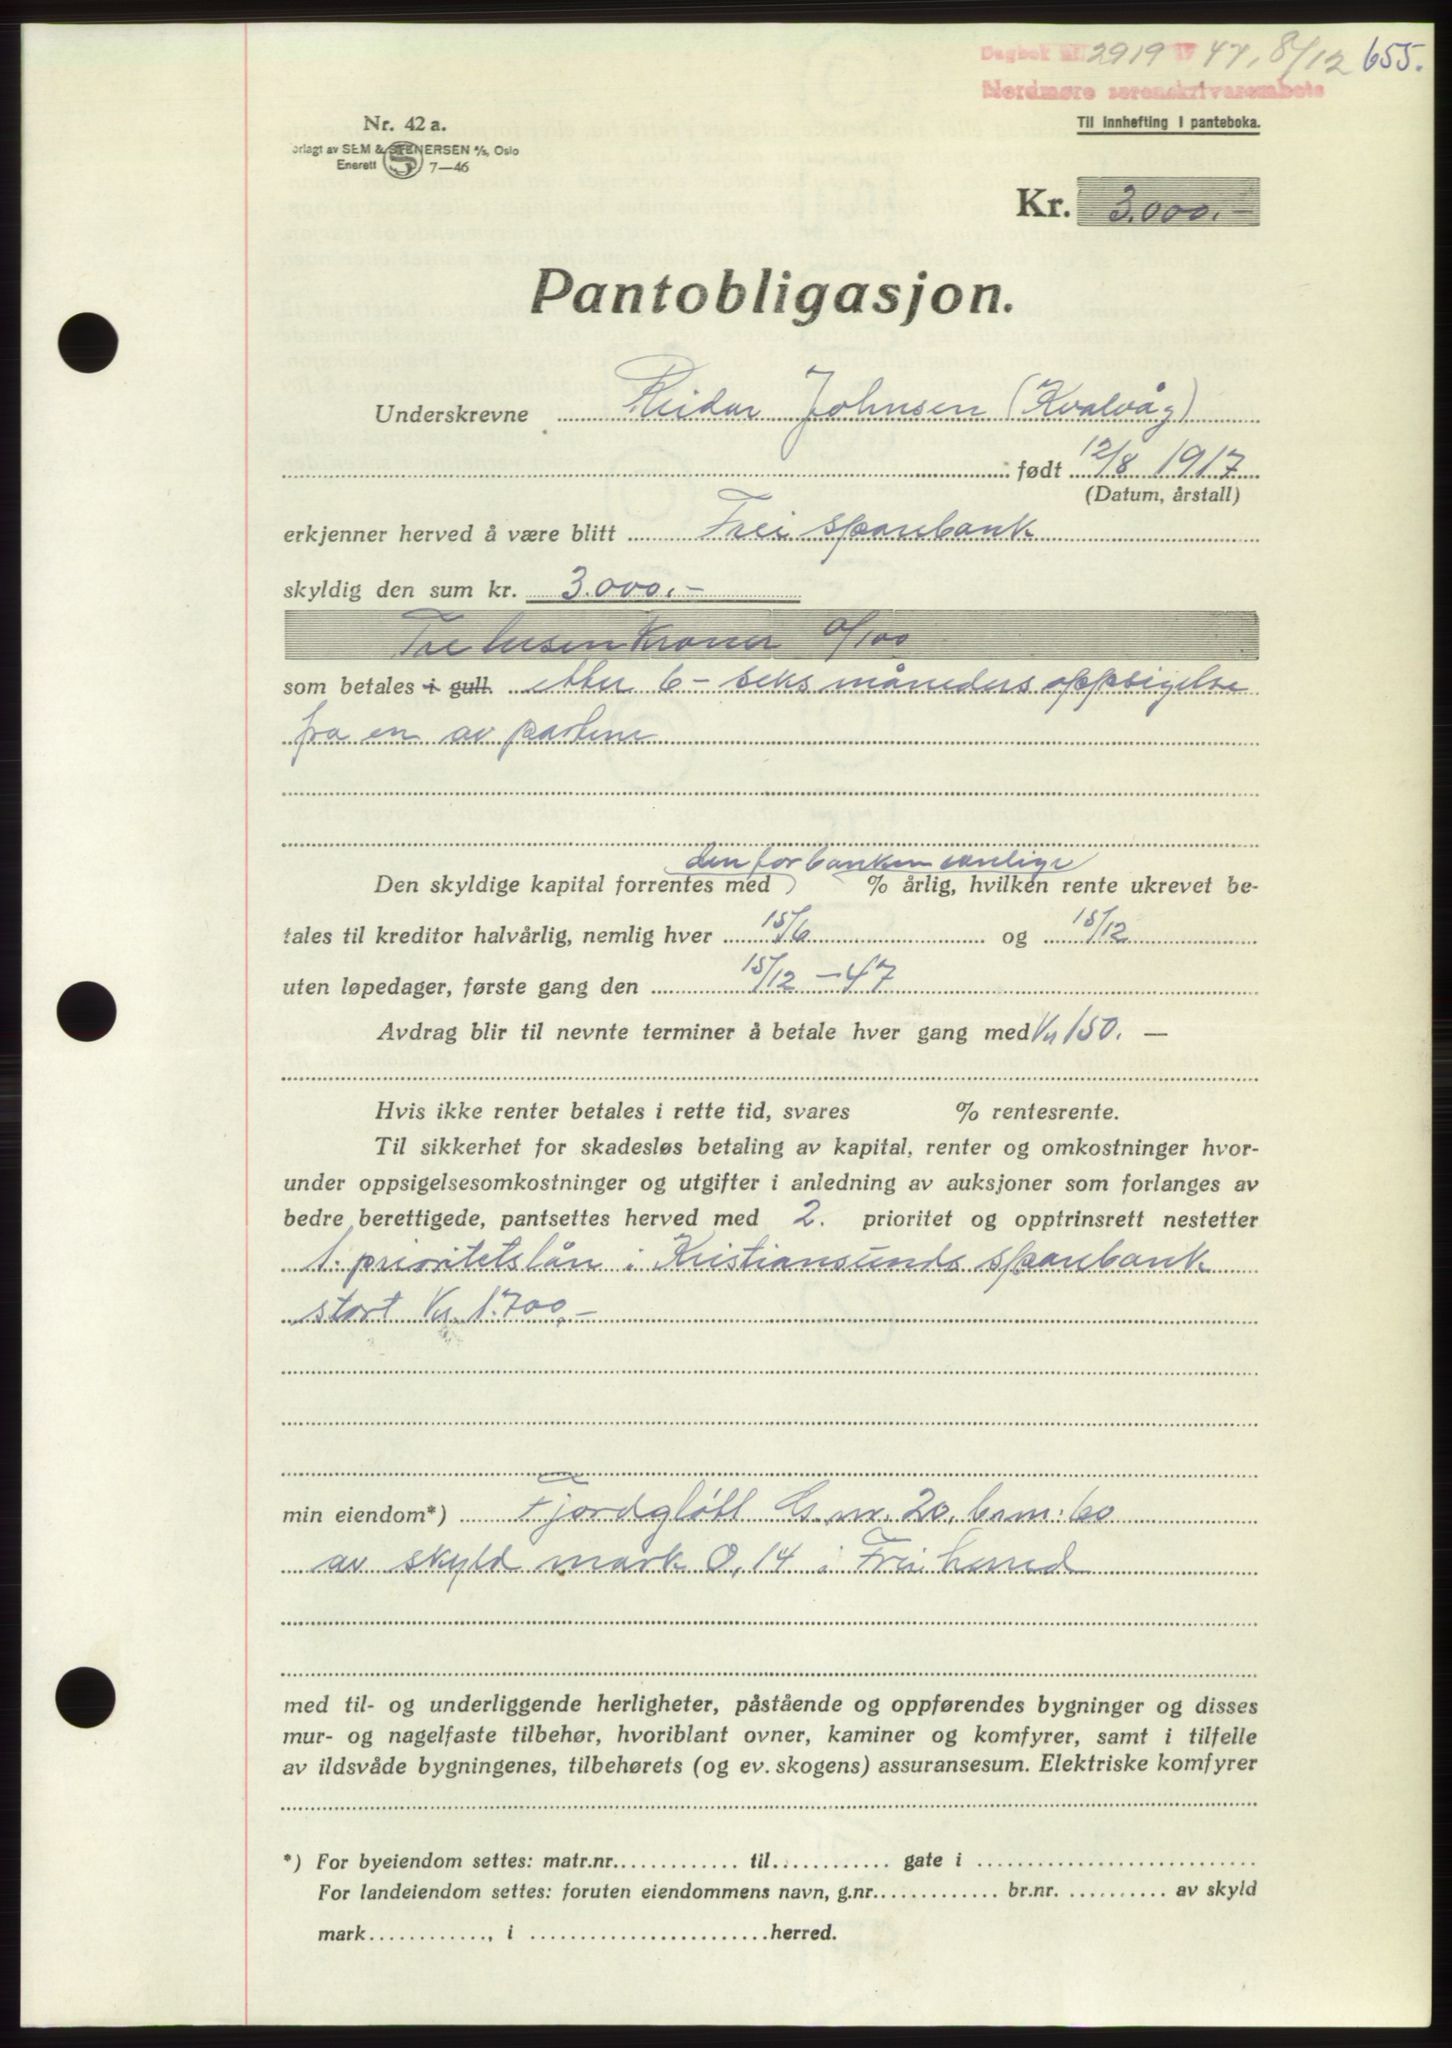 Dagbok nr. 2919 19 47, 8/12 655.
Nordmøre sorenskrivarembete
Til innhefting i panteboka.
Nr. 42 a.
orlagt av SEM & STENERSEN A/S, Oslo
Enerett S 7—46
Kr. 3.000.-
Pantobligasjon.
Underskrevne Reidar Johnsen (Kvalvåg)
født 12/8 1917
(Datum, årstall)
erkjenner herved å være blitt Frei sparebank
skyldig den sum kr. 3.000.-
Tre tusen kroner 0/100
som betales i gull. etter 6 - seks måneders oppsigelse
fra en av partene
den for banken vanlige
Den skyldige kapital forrentes med % årlig, hvilken rente ukrevet be-
tales til kreditor halvårlig, nemlig hver 15/6 og 15/12
uten løpedager, første gang den 15/12 - 47
Avdrag blir til nevnte terminer å betale hver gang med Kr 150. —
Hvis ikke renter betales i rette tid, svares % rentesrente.
Til sikkerhet for skadesløs betaling av kapital, renter og omkostninger hvor-
under oppsigelsesomkostninger og utgifter i anledning av auksjoner som forlanges av
bedre berettigede, pantsettes herved med 2. prioritet og opptrinsrett nestetter
1. prioritetslån i Kristiansunds sparebank
stort Kr. 1.700,-
min eiendom*) Fjordgløtt G.nr. 20, b.nr. 60
av skyld mark 0,14 i Frei herred
med til- og underliggende herligheter, påstående og oppførendes bygninger og disses
mur- og nagelfaste tilbehør, hvoriblant ovner, kaminer og komfyrer, samt i tilfelle
av ildsvåde bygningenes, tilbehørets (og ev. skogens) assuransesum. Elektriske komfyrer
*) For byeiendom settes: matr.nr. til gate i
For landeiendom settes: foruten eiendommens navn, g.nr. br.nr. av skyld
mark , i herred.